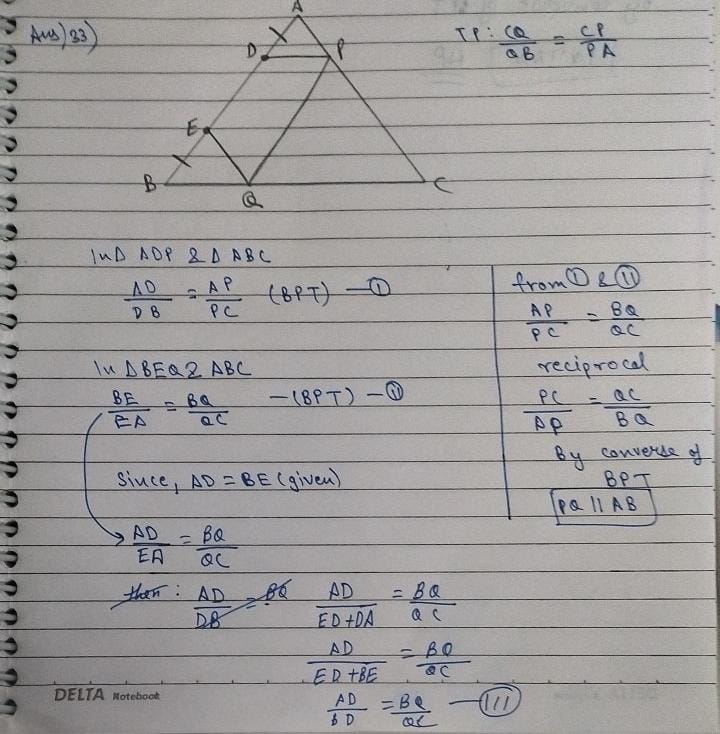 Ans) 33)
A
D
P
E
B
Q
C
TP: CQ/QB = CP/PA
In Δ ADP & Δ ABC
AD/DB = AP/PC (BPT) — ①
In Δ BEQ & ABC
BE/EA = BQ/QC — (BPT) — ⑪
Since, AD = BE (given)
AD/EA = BQ/QC
then: AD/DB = BQ
AD/ED+DA = BQ/QC
AD/ED+BE = BQ/QC
AD/BD = BQ/QC — (III)
from ① & ⑪
AP/PC = BQ/QC
reciprocal
PC/AP = QC/BQ
By converse of
BPT
PQ || AB
DELTA Notebook